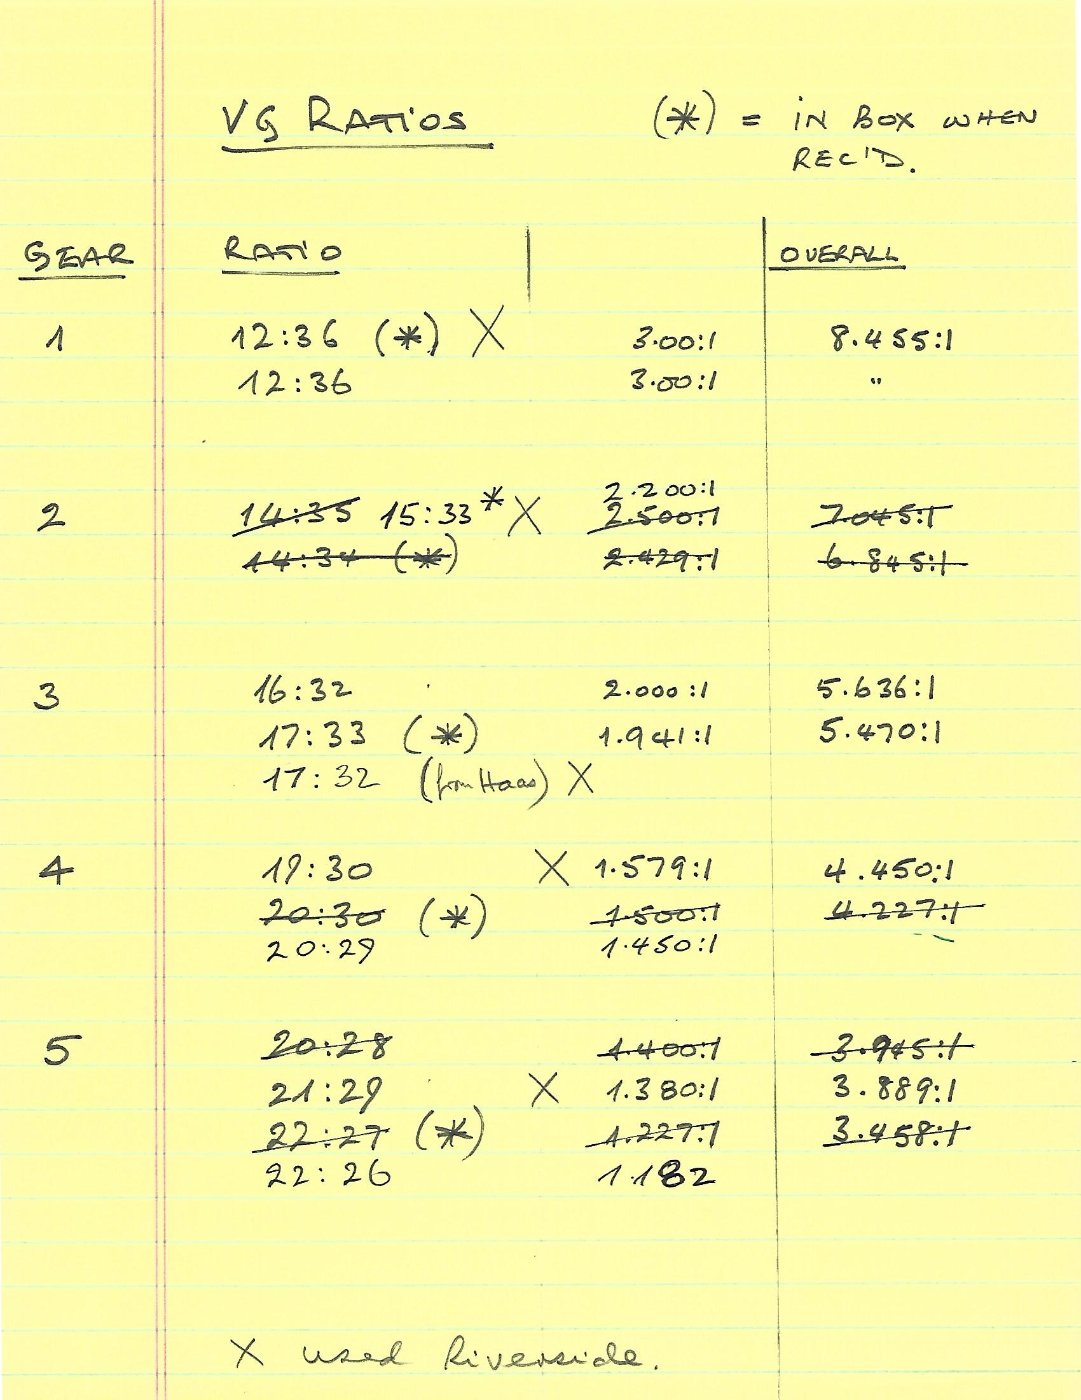 VG RATIOS (*) = IN BOX WHEN
REC'D.
GEAR RATIO OVERALL
1 12:36 (*) X 3.00:1 8.455:1
12:36 3.00:1 "
2.200:1
2 14:35 15:33* X 2.500:1 7.045:1
14:34 (*) 2.429:1 6.845:1
3 16:32 2.000:1 5.636:1
17:33 (*) 1.941:1 5.470:1
17:32 (from Haas) X
4 19:30 X 1.579:1 4.450:1
20:30 (*) 1.500:1 4.227:1
20:29 1.450:1
5 20:28 1.400:1 3.945:1
21:29 X 1.380:1 3.889:1
22:27 (*) 1.227:1 3.458:1
22:26 1.182
X used Riverside.